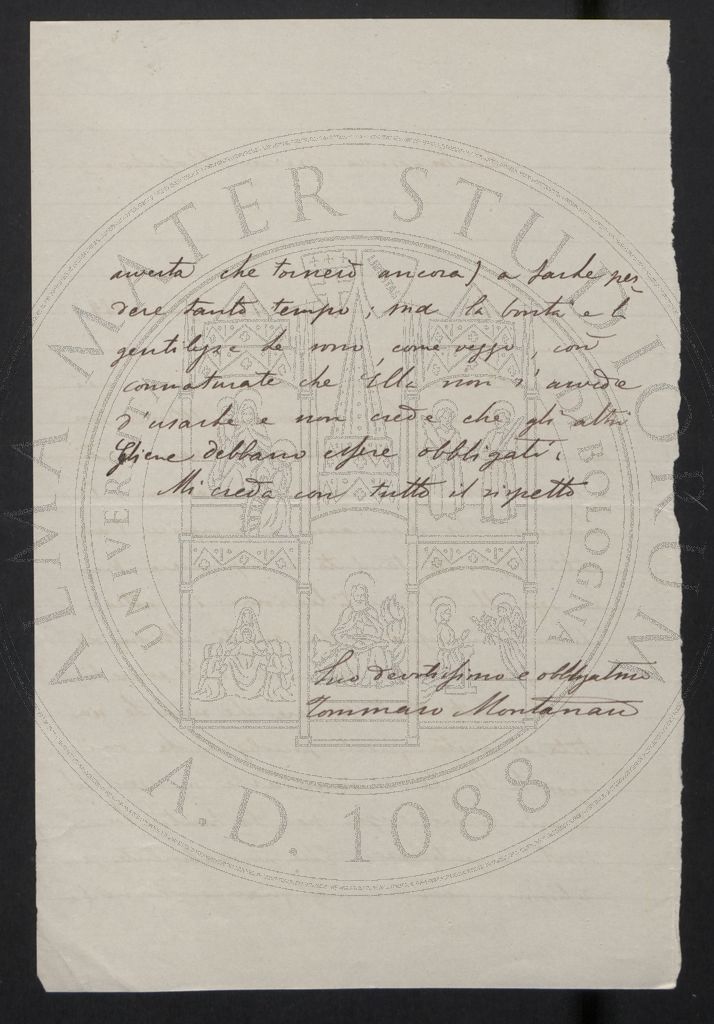 avverta che tornerò ancora) a farle per
dere tanto tempo; ma la bontà e la
gentilezza le sono, come veggo, così
connaturate che Ella non s'avvede
d'usarle e non crede che gli altri
Gliene debbano essere obbligati.
Mi creda con tutto il rispetto
Suo devotissimo e obbligatmo
Tommaso Montanari
ALMA MATER STUDIORUM
A.D. 1088